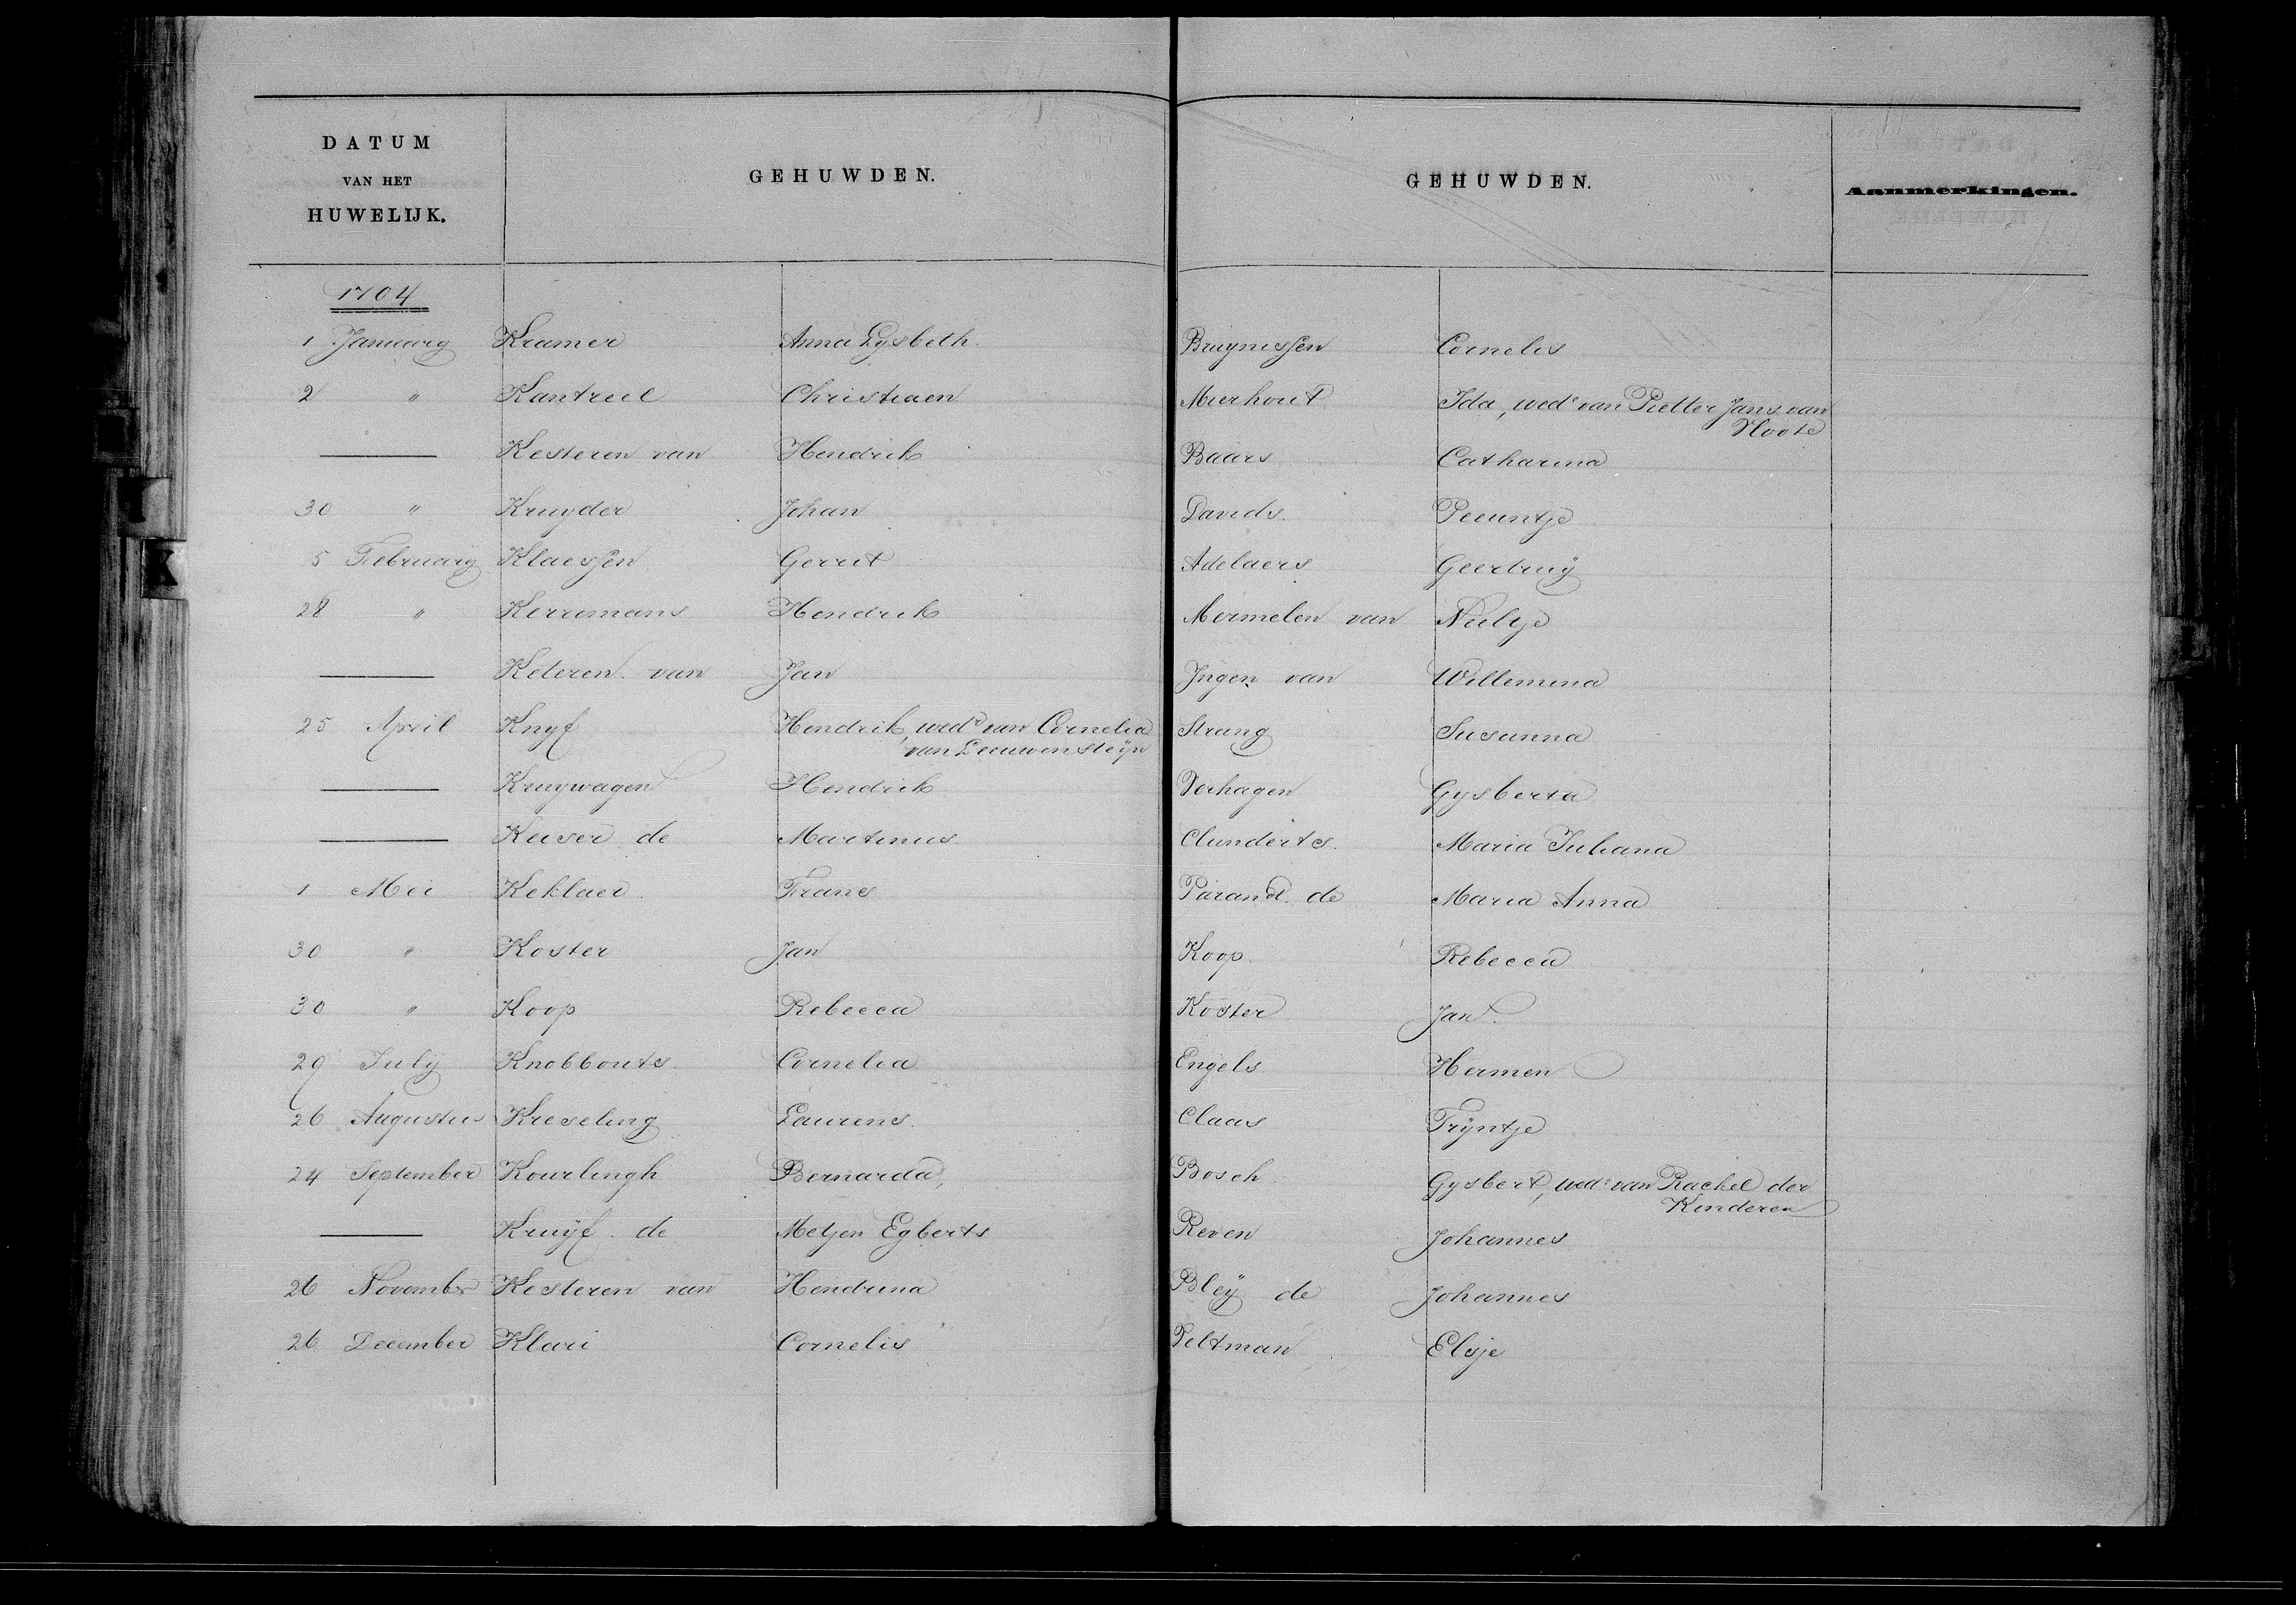 DATUM
VAN HET
HUWELIJK.
GEHUWDEN.
GEHUWDEN.
Aanmerkingen.
1704
1 January Kramer Anna Lysbeth Bruynissen Cornelis
2 " Kantreel Christiaen Mierhout Ida, wede van Pietter Jans van
Vloote
— Kesteren van Hendrik Baars Catharina
30 " Kruyder Johan Davids Peeuntje
5 February Klaessen Gerrit Adelaers Geertruÿ
28 " Kerremans Hendrik Mermelen van Neeltje
— Keteren van Jan Ingen van Willemina
25 April Knyf Hendrik, wedr van Cornelia Strang Susanna
van Leeuwensteÿn
— Kruywagen Hendrik Verhagen Gysberta
— Keiser de Martinus Clunderts Maria Juliana
1 Mei Keklaer Frans Parandt de Maria Anna
30 " Koster Jan Koop Rebecca
30 " Koop Rebecca Koster Jan
29 July Knobbouts Cornelia Engels Hermen
26 Augustus Kreseling Laurens Claas Trÿntje
24 September Kourlingh Bernarda, Bosch Gysbert, wedr van Rachel der
Kinderen
— Kruÿf de Metjen Egberts Reven Johannes
26 November Kesteren van Hendrina Bleÿ de Johannes
26 December Klari Cornelis Veltman Elsje
K